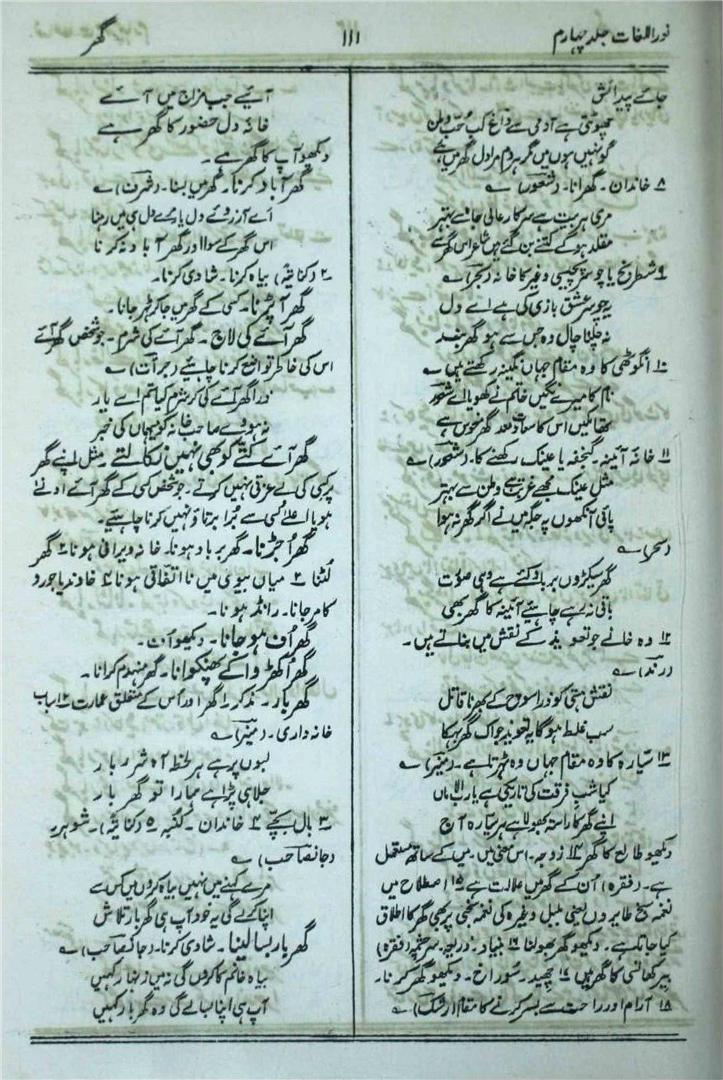 نور اللغات جلد چہارم
۱۱۱
گھر
جائے پیدائش
چھوٹتی ہے آدمی سے داغ کب حُبِّ وطن
گو نہیں ہوں میں مگر ہر دم مرا دل گھر میں ہے
۸ خاندان۔ گھرانا۔ (شعور) ؎
مری ہر بیت ہے سرکار عالی جاہ سے بہتر
مقلد ہو کے کتنے بن گئے ہیں شاعر اس گھر کے
۹ شطرنج یا چوسر پچیسی وغیرہ کا خانہ (بحر) ؎
چوسر عشق بازی کی ہے اے دل
نہ چلنا چال وہ جس سے ہو گھر بند
۱۰ انگوٹھی کا وہ مقام جہاں نگینہ رکھتے ہیں ؎
نام کا میرے نگیں خاتم نے کھویا اے شعور
تھا نگیں اس کا سعادت مند گھر منحوس ہے
۱۱ خانہ آئینہ۔ گنجفہ یا عینک رکھنے کا۔ (شعور) ؎
مثل عینک مجھے غربت ہے وطن سے بہتر
پائی آنکھوں پہ جگہ میں نے اگر گھر نہ ہوا
(سحر) ؎
گھر سیکڑوں برباد کئے ہے وہی صورت
باقی نہ رہے چاہیئے آئینہ کا گھر بھی
۱۲ وہ خانے جو تعویذ کے نقش میں بناتے ہیں۔
(رند) ؎
نقش ہستی کو ذرا سوچ کے بھرنا قاتل
سب غلط ہوگا یہ تعویذ جو اک گھر بہکا
۱۳ سیّارہ کا وہ مقام جہاں وہ ٹھہرتا ہے۔ (منیر) ؎
کیا شبِ فرقت کی تاریکی ہے یارب الاماں
اپنے گھر کا راستہ بھولا ہے ہر سیّارہ آج
دیکھو طالع کا گھر ۱۴ زوجہ۔ اس معنی میں، میں کے ساتھ مستعمل
ہے۔ (فقرہ) اُن کے گھر میں علالت ہے ۱۵ اصطلاح میں
نغمہ سنج طائروں یعنی بلبل وغیرہ کی نغمہ سنجی پر بھی گھر کا اطلاق
کیا جاتا ہے۔ دیکھو گھر بھولنا ۱۶ بنیاد۔ ذریعہ۔ سرچشمہ (فقرہ)
بیر کھانسی کا گھر ہیں ۱۷ چھید۔ سُوراخ۔ دیکھو گھر کرنا۔
۱۸ آرام اور راحت سے بسر کرنے کا مقام (رشک) ؎
آئیے جب مزاج میں آئے
خانہ دل حضور کا گھر ہے
دیکھو آپ کا گھر ہے۔
گھر آباد کرنا۔ گھر میں بسنا۔ (شرف) ؎
اے آرزوئے دل یار مرے دل ہی میں رہنا
اس گھر کے سوا اور گھر آباد نہ کرنا
۲ (کنایۃً) بیاہ کرنا۔ شادی کرنا۔
گھر آپڑنا۔ کسی کے گھر میں جا کر ٹھہر جانا۔
گھر آئے کی لاج۔ گھر آئے کی شرم۔ جو شخص گھر آئے
اس کی خاطر تواضع کرنا چاہیئے (جرأت) ؎
ذرا گھر آئے کی کر شرم کیا تم اے یار
نہ ہووے صاحب خانہ کو میہماں کی خبر
گھر آئے کتّے کو بھی نہیں نکالتے۔ مثل اپنے گھر
پر کسی کی بے عزتی نہیں کرتے۔ جو شخص کسی کے گھر آئے ادنےٰ
ہو یا اعلےٰ کسی سے بُرا برتاؤ نہیں کرنا چاہیئے۔
گھر اُجڑنا۔ گھر برباد ہونا۔ خانہ ویرانی ہونا۔ گھر
لُٹنا ۲ میاں بیوی میں نااتفاقی ہونا ۳ خاوند یا جورو
کا مر جانا۔ رانڈ ہونا۔
گھر اُف ہو جانا۔ دیکھو اُف۔
گھر اُکھڑوا کے پھنکوانا۔ گھر منہدم کرانا۔
گھر بار۔ مذکر ۱ گھر اور اُس کے متعلق عمارت ۲ اسباب
خانہ داری۔ (منیر) ؎
لبوں پر ہے ہر لحظہ آہ شرر بار
جلا ہی پڑا ہے ہمارا تو گھر بار
۳ بال بچّے ۴ خاندان۔ کنبہ ۵ (کنایۃً)۔ شوہر
(جانصاحب) ؎
مرے کہنے میں نہیں بیاہ کروں میں کس سے
اپنا کرلے گی یہ خود آپ ہی گھر بار تلاش
گھر بار بسا لینا۔ شادی کرنا۔ (جانصاحب) ؎
بیاہ خانم کا کروں گی نہ میں زنہار کہیں
آپ ہی اپنا بسا لے گی وہ گھر بار کہیں